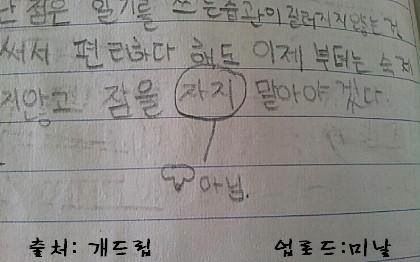 점은 일기를 쓰는 습관이 길러지지 않는 것
써서 편리하다 해도 이제 부터는 숙제
지않고 잠을 자지 말아야 겠다.
아님.
출처: 개드립
업로드:미날